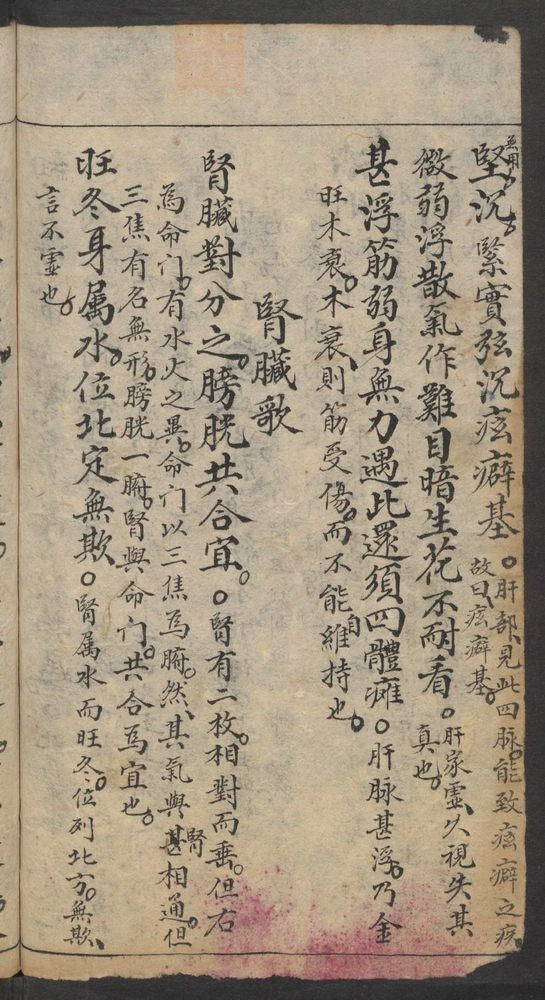 堅沉緊實弦沉痃癖基。肝部見此四脉能致痃癖之疾
故曰痃癖基
微弱浮散氣作難目暗生花不耐看。肝家虛久視失其
真也
甚浮筋弱身無力遇此還須四體癱。肝脉甚浮乃金
旺木衰木衰則筋受傷而不能自維持也
腎臟歌
腎臟對分之膀胱共合宜。腎有二枚相對而垂但右
為命門有水火之異命門以三焦為腑然其氣與腎相通但
三焦有名無形膀胱一腑腎與命門共合為宜也
旺冬身属水位北定無欺。腎属水而旺冬位列北方無欺
言不虛也